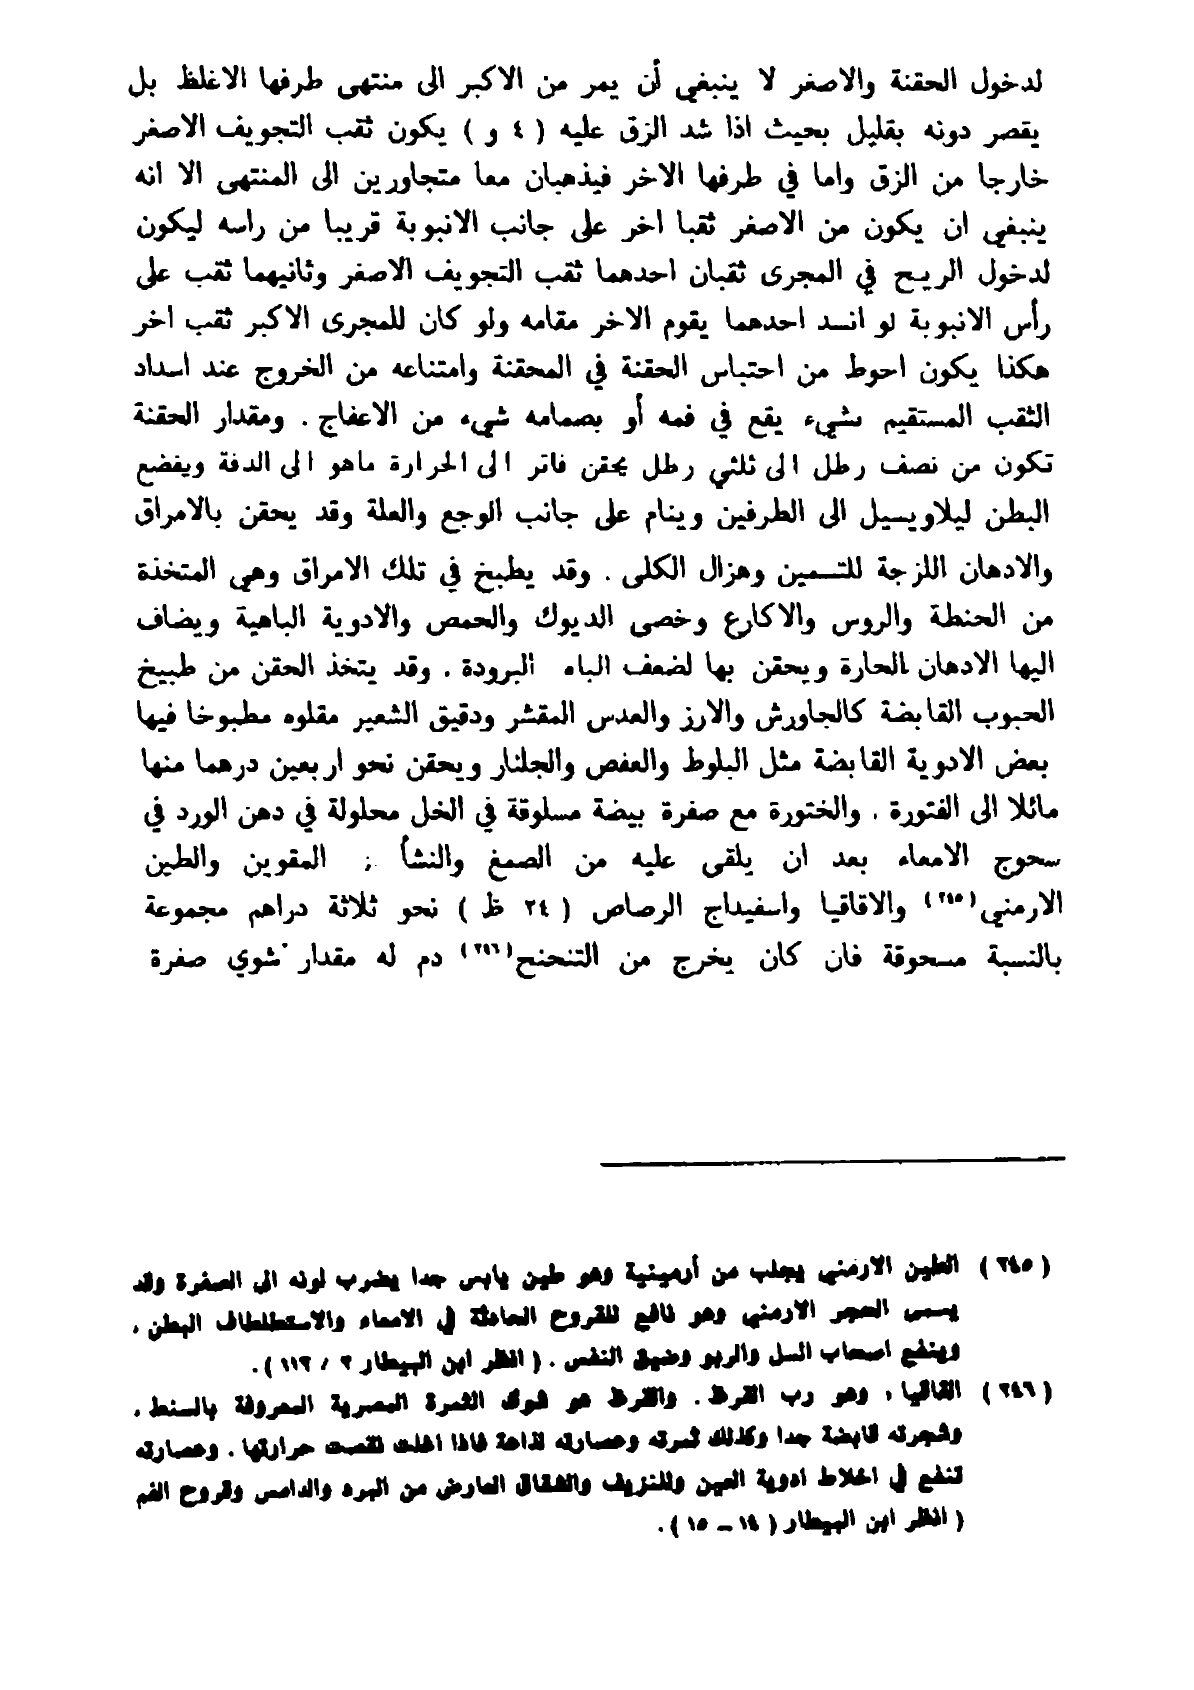 لدخول الحقنة والاصغر لا ينبغي أن يمر من الاكبر الى منتهى طرفها الاغلظ بل
يقصر دونه بقليل بحيث اذا شد الزق عليه ( ٤ و ) يكون ثقب التجويف الاصغر
خارجا من الزق واما في طرفها الاخر فيذهبان معا متجاورين الى المنتهى الا انه
ينبغي ان يكون من الاصغر ثقبا اخر على جانب الانبوبة قريبا من راسه ليكون
لدخول الريح في المجرى ثقبان احدهما ثقب التجويف الاصغر وثانيهما ثقب على
رأس الانبوبة لو انسد احدهما يقوم الاخر مقامه ولو كان للمجرى الاكبر ثقب اخر
هكذا يكون احوط من احتباس الحقنة في المحقنة وامتناعه من الخروج عند اسداد
الثقب المستقيم بشيء يقع في فمه أو بصمامه شيء من الاعفاج . ومقدار الحقنة
تكون من نصف رطل الى ثلثي رطل يحقن فاتر الى الحرارة ماهو الى الدفة ويفضع
البطن ليلاويسيل الى الطرفين وينام على جانب الوجع والعلة وقد يحقن بالامراق
والادهان اللزجة للتسمين وهزال الكلى . وقد يطبخ في تلك الامراق وهي المتخذة
من الحنطة والروس والاكارع وخصى الديوك والحمص والادوية الباهية ويضاف
اليها الادهان الحارة ويحقن بها لضعف الباه البرودة . وقد يتخذ الحقن من طبيخ
الحبوب القابضة كالجاورش والارز والعدس المقشر ودقيق الشعير مقلوه مطبوخا فيها
بعض الادوية القابضة مثل البلوط والعفص والجلنار ويحقن نحو اربعين درهما منها
مائلا الى الفتورة . والختورة مع صفرة بيضة مسلوقة في الخل محلولة في دهن الورد في
سحوج الامعاء بعد ان يلقى عليه من الصمغ والنشأ ; المقوين والطين
الارمني(٢٤٥) والاقاقيا واسفيداج الرصاص ( ٢٤ ظ ) نحو ثلاثة دراهم مجموعة
بالنسبة مسحوقة فان كان يخرج من التنحنح(٢٤٦) دم له مقدار شوي صفرة
( ٢٤٥ ) الطين الارمني يجلب من أرمينية وهو طين يابس جدا يضرب لونه الى الصفرة وقد
يسمى الحجر الارمني وهو نافع للقروح الحادثة في الامعاء والاستطلطاف البطن ،
وينفع اصحاب السل والربو وضيق النفس . ( انظر ابن البيطار ٣ / ١١٢ ) .
( ٢٤٦ ) القاقيا ، وهو رب القرظ . والقرظ هو شوك الثمرة المصرية المعروفة بالسنط ،
وشجرته قابضة جدا وكذلك ثمرته وعصارته لذاعة فاذا اغلت نقصت حرارتها . وعصارته
تنفع في اخلاط ادوية العين وللنزيف والشقاق العارض من البرد والداحس وقروح الفم
( انظر ابن البيطار ( ١٤ - ١٥ ) .